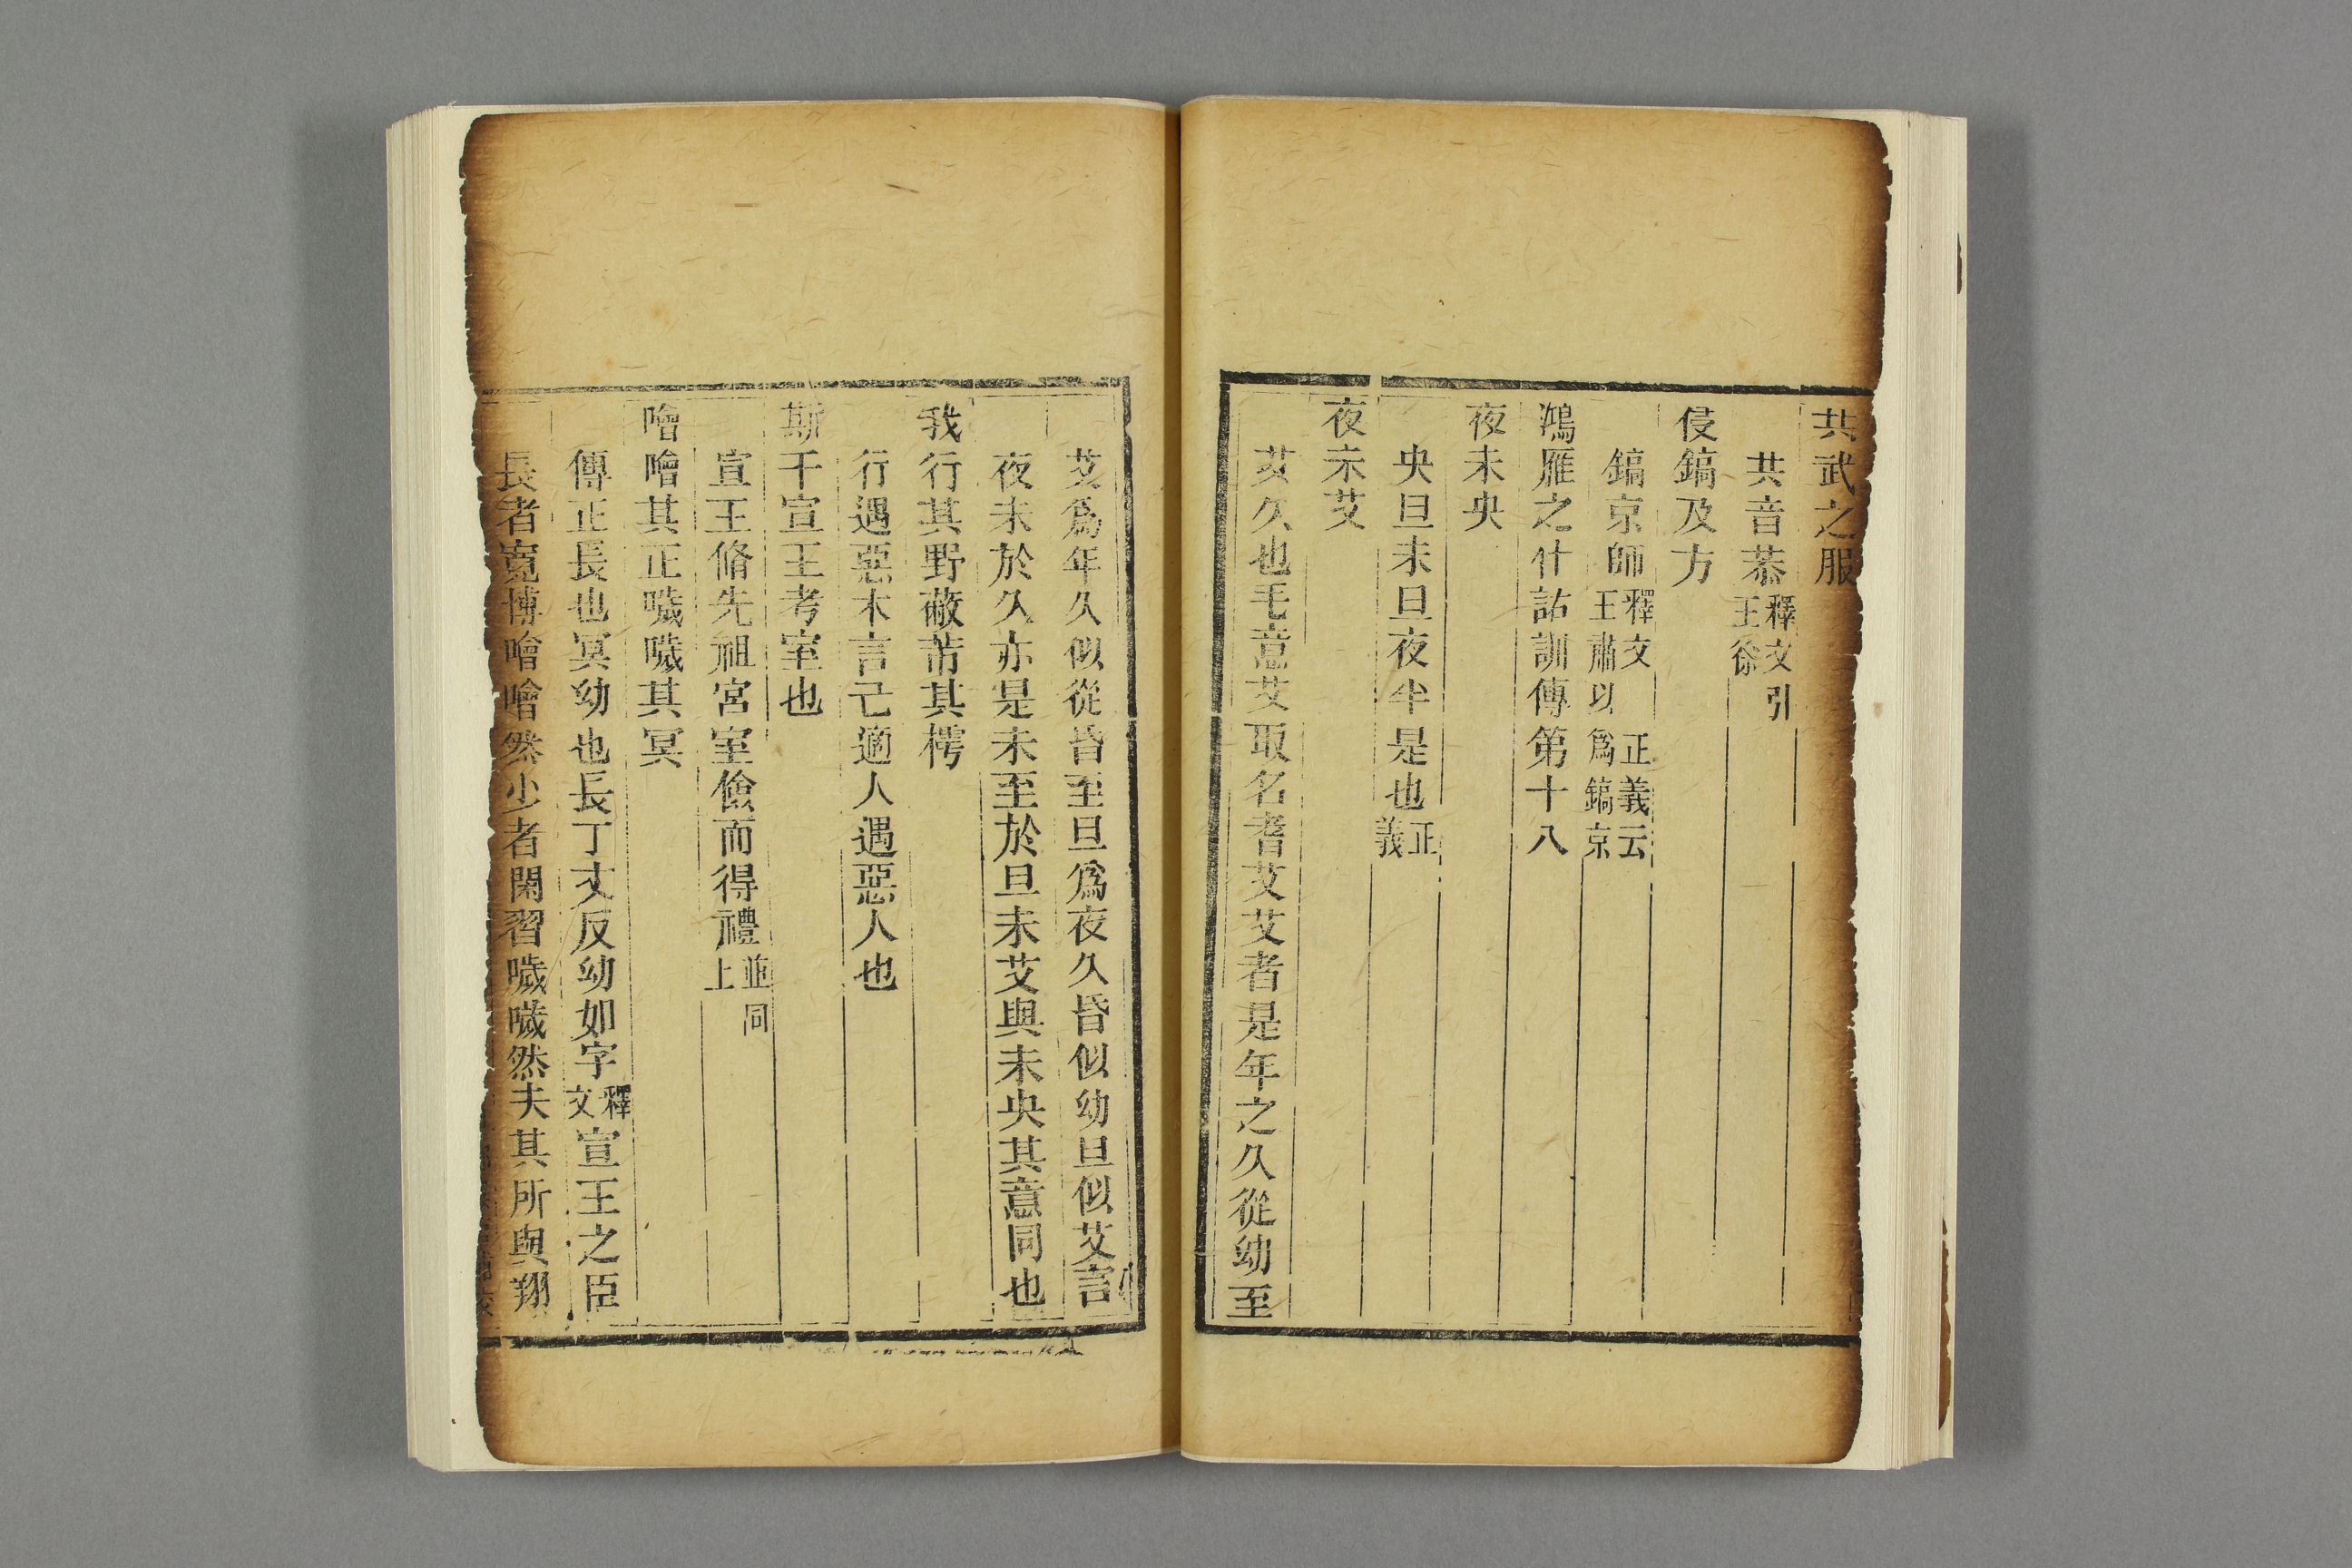 共武之服
共音恭釋文引王徐
侵鎬及方
鎬京師釋文王肅以爲鎬京正義云
鴻雁之什詁訓傳第十八
夜未央
央旦未旦夜半是也正義
夜未艾
艾久也毛意艾取名耆艾艾者是年之久從幼至
艾爲年久似從昏至旦爲夜久昏似幼旦似艾言
夜未於久亦是未至於旦未艾與未央其意同也
我行其野蔽芾其樗
行遇惡木言已適人遇惡人也
斯干宣王考室也
宣王脩先祖宮室儉而得禮並同上
噲噲其正噦噦其冥
傳正長也冥幼也長丁丈反幼如字釋文宣王之臣
長者寬博噲噲然少者閑習噦噦然夫其所與翔